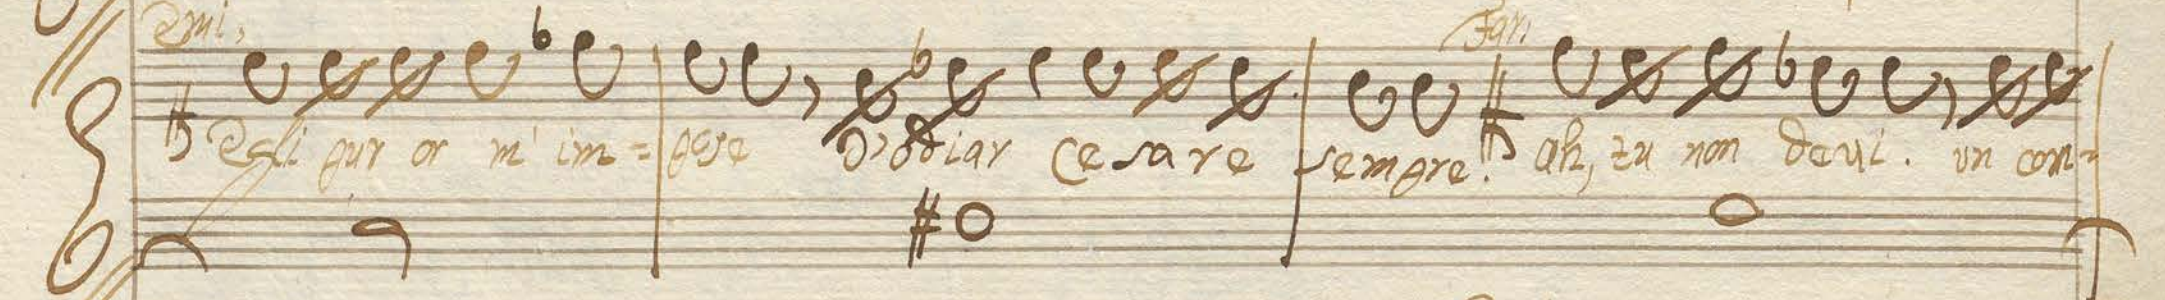 Emi, Far,
Egli pur or m' im= pose D'odiar Cesare sempre. ah, tu non devi. un con=